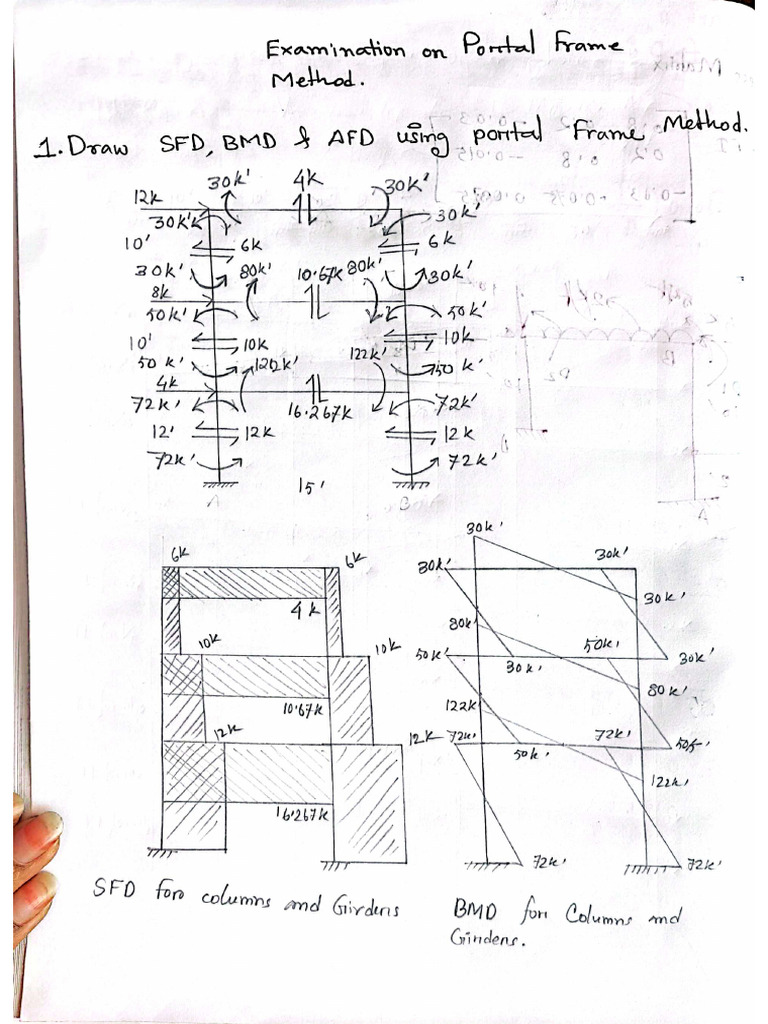 Examination on Portal Frame
Method.
1. Draw SFD, BMD & AFD using portal Frame Method.
30k' 4k 30k'
12k
30k' 30k'
10' 6k 6k
30k' 80k' 10.67k 80k' 30k'
8k
50k' 50k'
10' 10k 10k
50k' 122k' 122k' 50k'
4k
72k' 16.267k 72k'
12' 12k 12k
72k' 72k'
15'
A B
6k 6k
4k
10k 10k
10.67k
12k 12k
16.267k
SFD for columns and Girders
30k'
30k' 30k'
30k'
80k'
50k' 30k' 50k' 30k'
80k'
122k
72k' 50k' 72k'
122k'
72k' 72k'
BMD for Columns and
Girders.